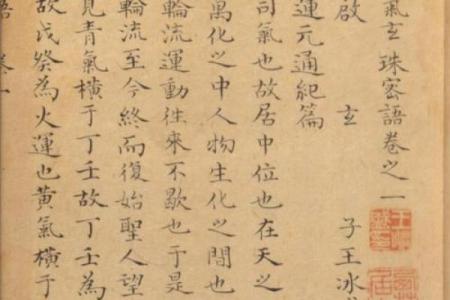 氣玄珠密語卷之一
玄
子王冰
啟
運元通紀篇
司氣也故居中位也在天之
萬化之中人物生化之間也
輪流運動徃來不歇也于是
輪流至今終而復始聖人望
見青氣橫于丁壬故丁壬為
故戊癸為火運也黃氣橫于
語 卷一